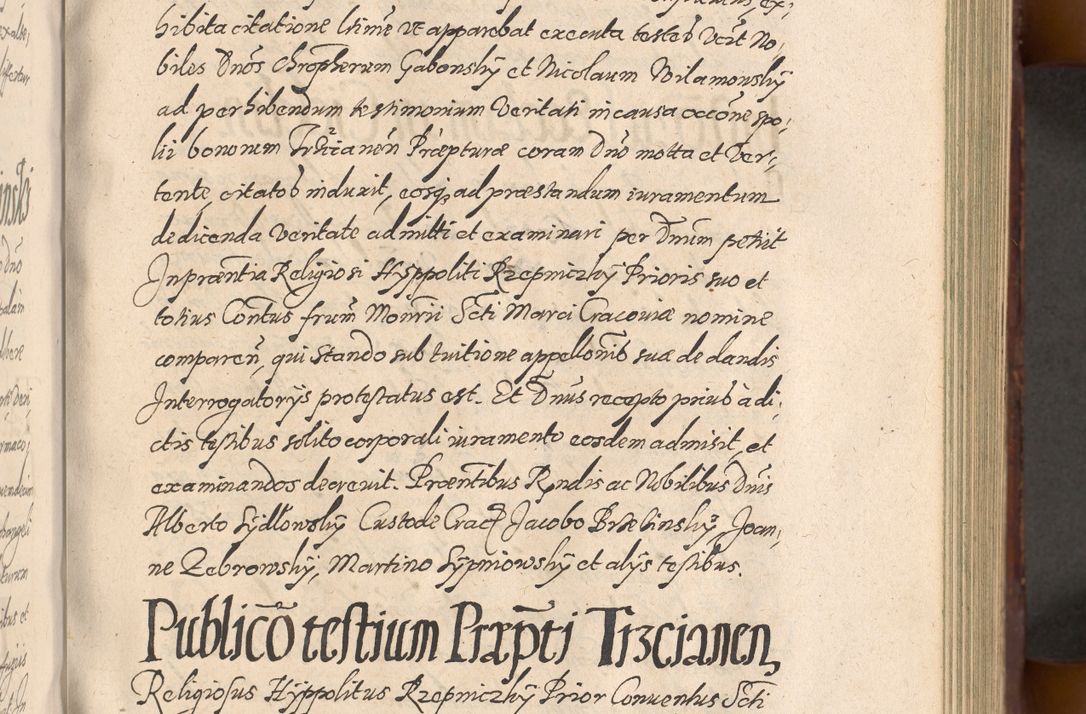 hibita citatione ltime ut apparebat executa testes Vert No,
biles Dnos Chropherum Gabonshy et Nicolaum Wilamowshy
ad perhibendum testimonium Veritati in causa occone spo,
lii bonorum Trzcianen Præpturæ coram Dno motta et Ver,
tente, citatos induxit, eosq, ad præstandum iuramentum
de dicenda Veritate admitti et examinari per Dnum petiit
Inpræntia Religiosi Hyppoliti Rzepniczhy Prioris suo et
totius Contus frum Monrii Scti Marci Cracoviæ nomine
comparen, qui stando sub tuitione appellonis suæ de dandis
Interrogatorys protestatus est. Et Dnus recepto prius à di,
ctis testibus solito corporali iuramento eosdem admisit, et
examinandos decrevit. Præntibus Rndis ac Nobilibus Dnis
Alberto Sydlowshy Custode Crac Jacobo Brzezinshy, Joan,
ne Zebrowshy, Martino Sypniowshy et alys testibus.
Publico testium Præpti Trzcianen,
Religiosus Hyppolitus Rzepniczhy Prior Conventus Scti